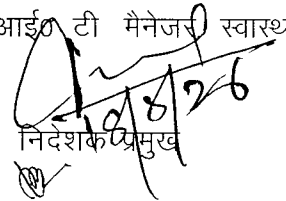 आई० टी मैनेजर स्वास्थ
18/8/26
निदेशक प्रमुख